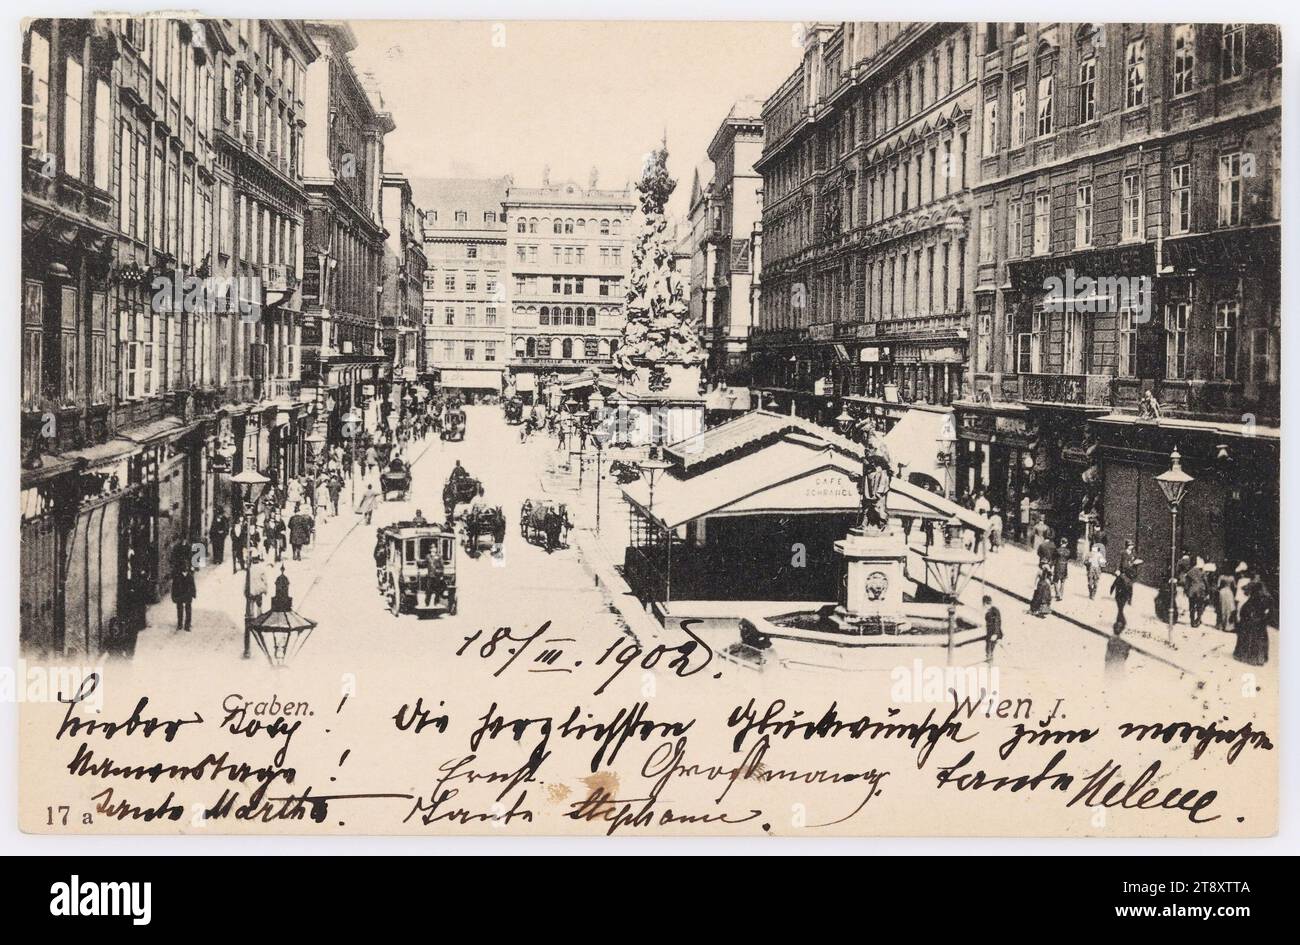 CAFÉ
SCHRANGL
18./III. 1902.
Graben.
Wien I.
Lieber Dosy! Die herzlichsten Glückwünsche zum morgigen
Namenstage! Ernst. Großmama, Tante Helene.
17 a
Tante Martha. Tante Stephanie.
alamy
Image ID: 2T8XTTA
www.alamy.com